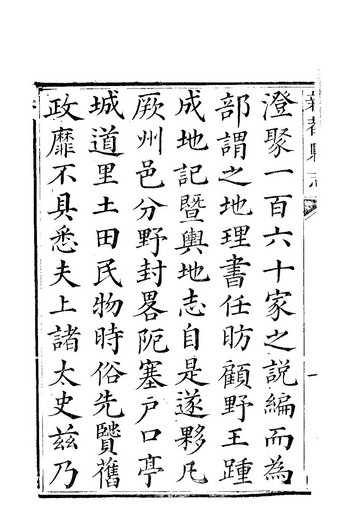 新都縣志
澄聚一百六十家之說編而為
部謂之地理書任昉顧野王踵
成地記暨輿地志自是遂夥凡
厥州邑分野封畧阨塞戶口亭
城道里土田民物時俗先贒舊
政靡不具悉夫上諸太史兹乃
一